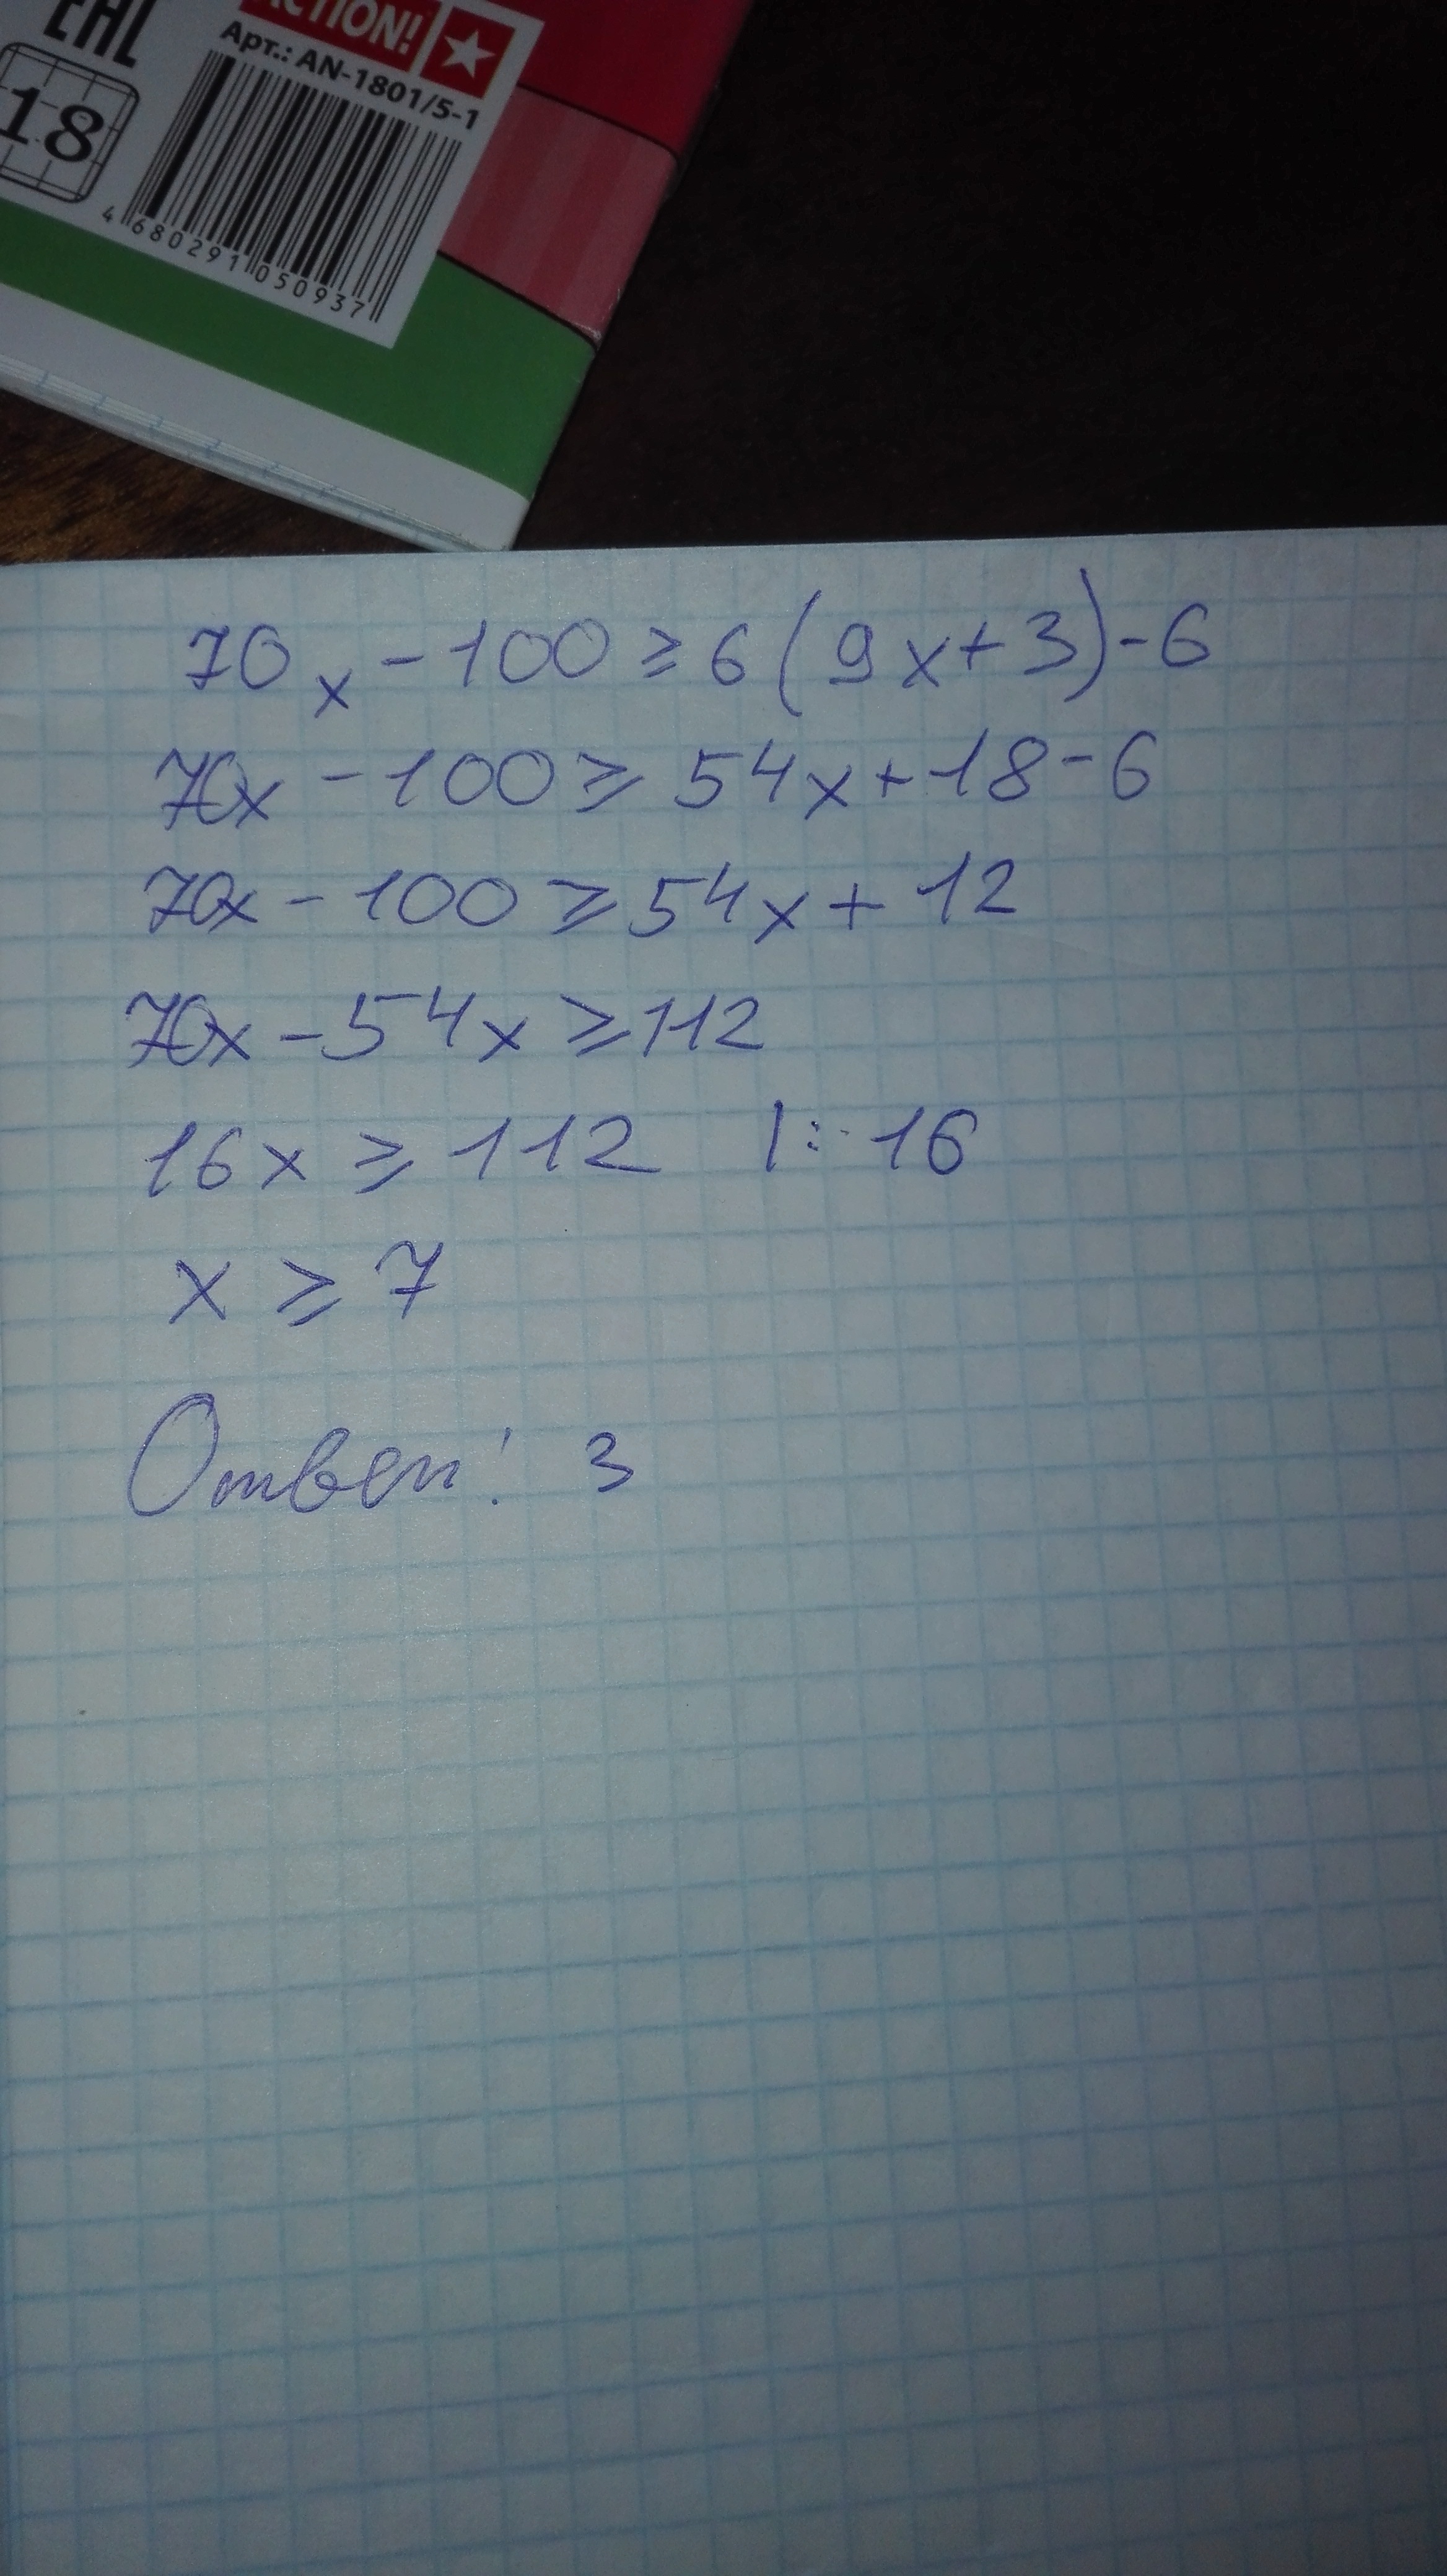 EAC
ACTION!
Арт.: AN-1801/5-1
18
4 680291 050937
70x - 100 ≥ 6(9x+3)-6
70x - 100 ≥ 54x+18-6
70x - 100 ≥ 54x + 12
70x - 54x ≥ 112
16x ≥ 112 |: 16
x ≥ 7
Ответ: 3